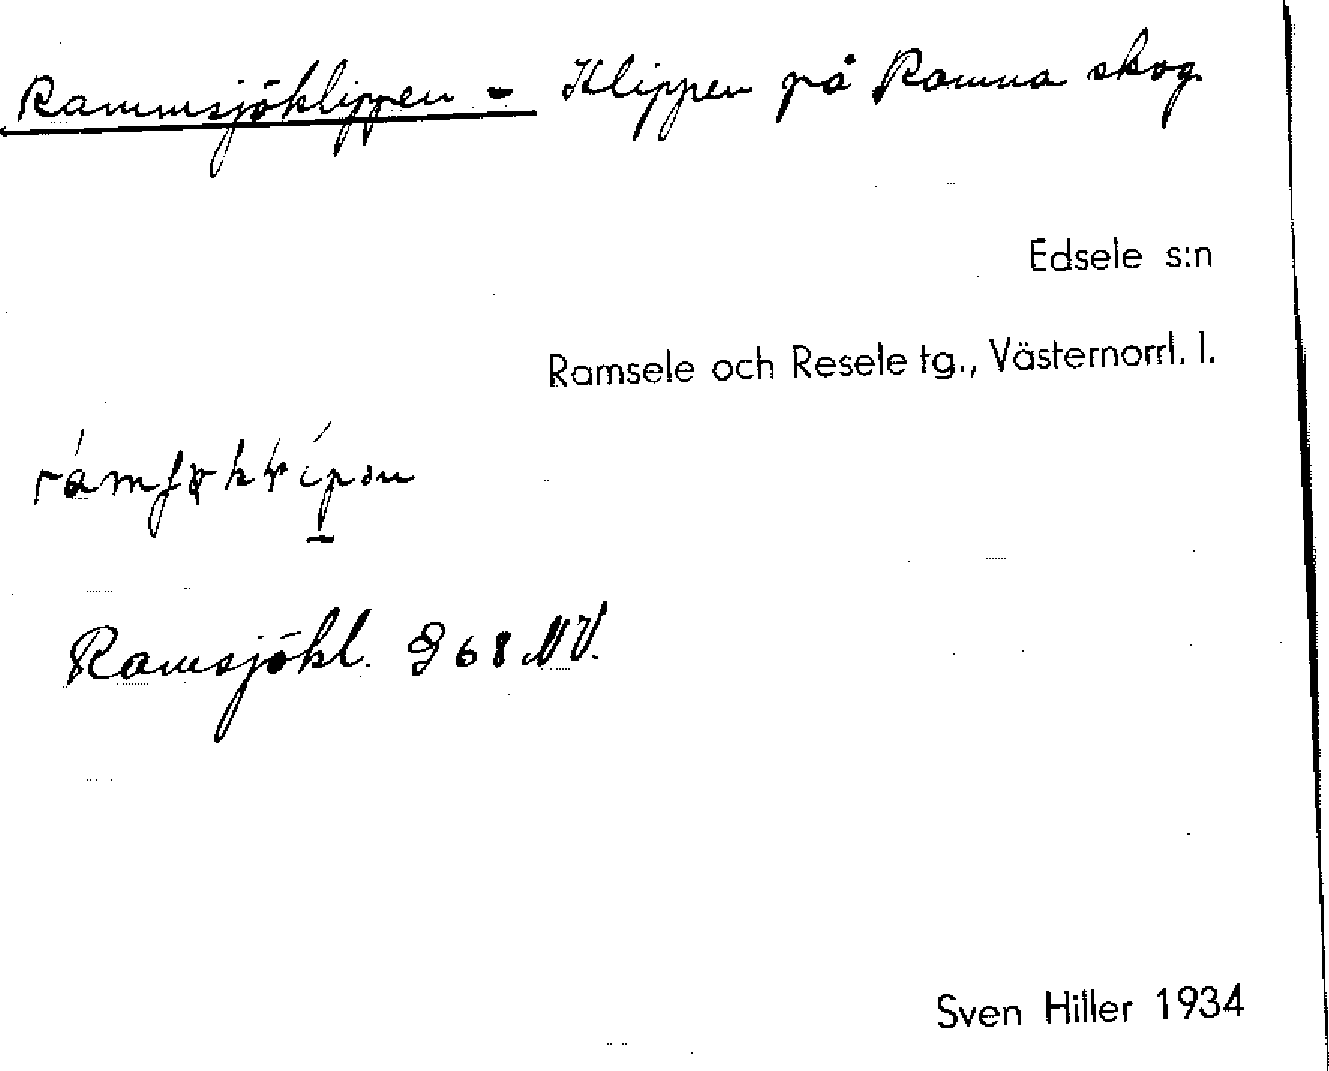 Rammsjöklippen - Klippen på Ramna skog.
Edsele s:n
Ramsele och Resele tg., Västernorrl. l.
Ramsjökl. 968 NV.
Sven Hiller 1934